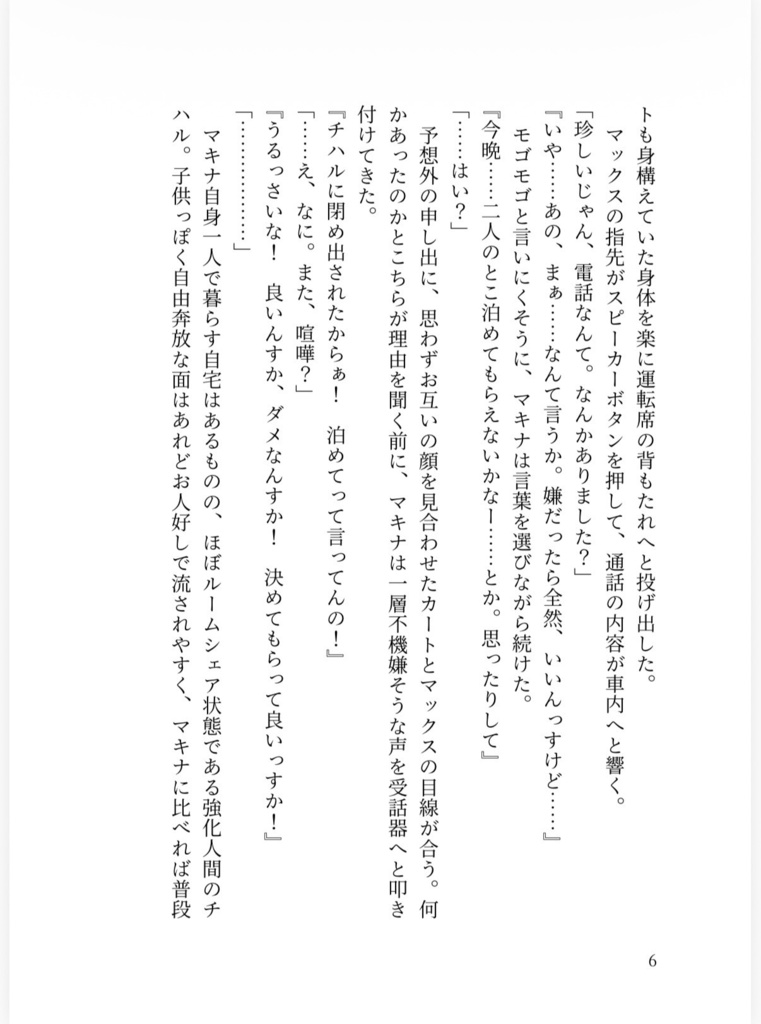 トも身構えていた身体を楽に運転席の背もたれへと投げ出した。
　マックスの指先がスピーカーボタンを押して、通話の内容が車内へと響く。
「珍しいじゃん、電話なんて。なんかありました？」
『いや……あの、まぁ……なんて言うか。嫌だったら全然、いいんっすけど……』
　モゴモゴと言いにくそうに、マキナは言葉を選びながら続けた。
『今晩……二人のとこ泊めてもらえないかなー……とか。思ったりして』
「……はい？」
　予想外の申し出に、思わずお互いの顔を見合わせたカートとマックスの目線が合う。何
かあったのかとこちらが理由を聞く前に、マキナは一層不機嫌そうな声を受話器へと叩き
付けてきた。
『チハルに閉め出されたからぁ！　泊めてって言ってんの！』
「……え、なに。また、喧嘩？」
『うるっさいな！　良いんすか、ダメなんすか！　決めてもらって良いっすか！』
「………………」
　マキナ自身一人で暮らす自宅はあるものの、ほぼルームシェア状態である強化人間のチ
ハル。子供っぽく自由奔放な面はあれどお人好しで流されやすく、マキナに比べれば普段
6